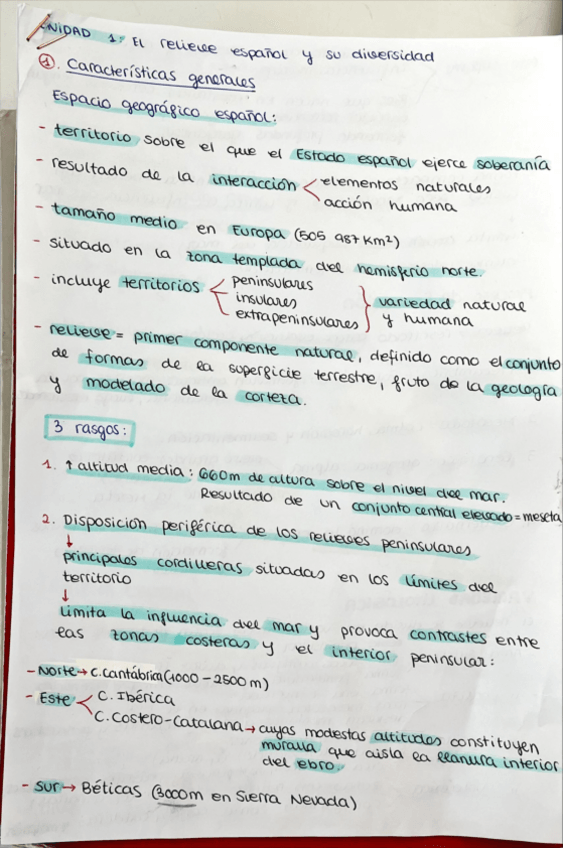 UNIDAD 1: El relieve español y su diversidad
1. Características generales
Espacio geográfico español:
- territorio sobre el que el Estado español ejerce soberanía
- resultado de la interacción < elementos naturales
acción humana
- tamaño medio en Europa (505 987 km²)
- situado en la zona templada del hemisferio norte.
- incluye territorios < peninsulares
insulares
extrapeninsulares } variedad natural
y humana
- relieve = primer componente natural, definido como el conjunto
de formas de la superficie terrestre, fruto de la geología
y modelado de la corteza.
3 rasgos:
1. ↑ altitud media: 660m de altura sobre el nivel del mar.
Resultado de un conjunto central elevado = meseta
2. Disposición periférica de los relieves peninsulares
↓
principales cordilleras situadas en los límites del
territorio
↓
Limita la influencia del mar y provoca contrastes entre
las zonas costeras y el interior peninsular:
- Norte → C. Cantábrica (1000 - 2500 m)
- Este < C. Ibérica
C. Costero-Catalana → cuyas modestas altitudes constituyen
muralla que aisla la llanura interior
del ebro.
- Sur → Béticas (3000m en Sierra Nevada)